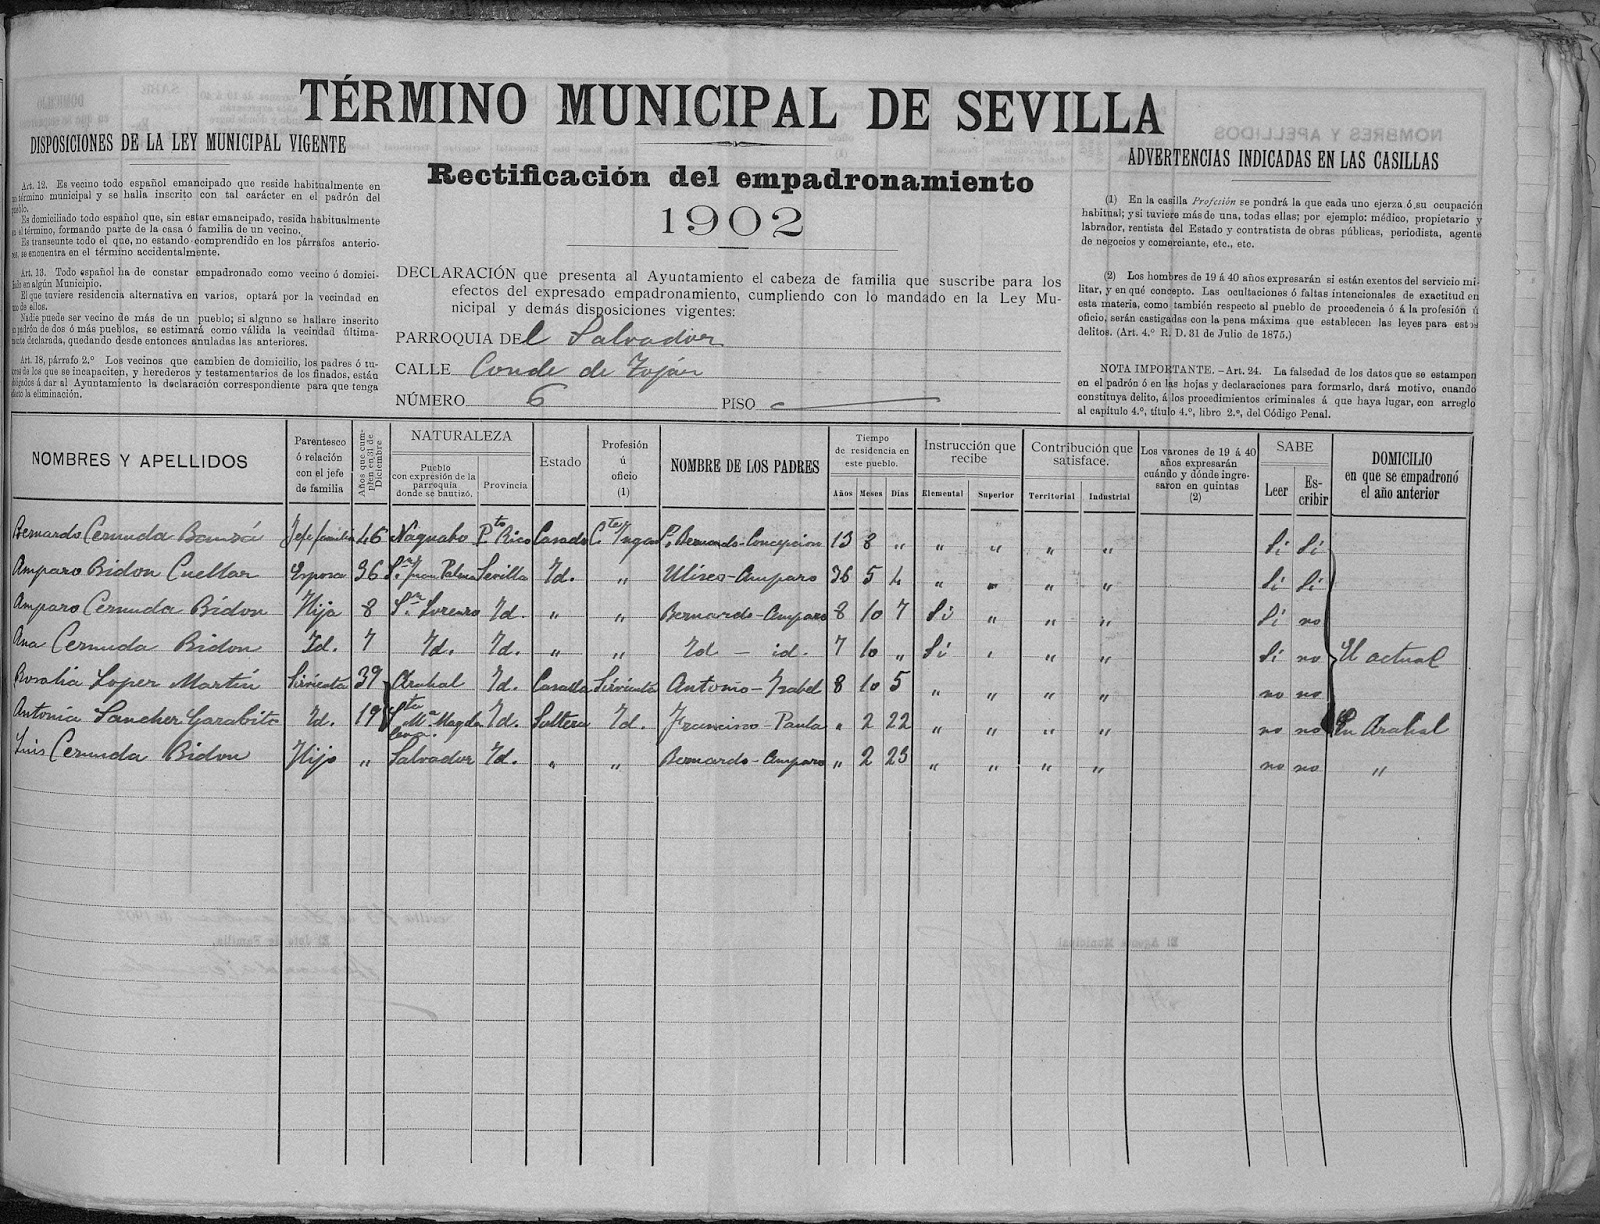 TÉRMINO MUNICIPAL DE SEVILLA
Rectificación del empadronamiento
1902
DISPOSICIONES DE LA LEY MUNICIPAL VIGENTE
Art. 12. Es vecino todo español emancipado que reside habitualmente en
término municipal y se halla inscrito con tal carácter en el padrón del
Es domiciliado todo español que, sin estar emancipado, resida habitualmente
término, formando parte de la casa ó familia de un vecino.
Es transeunte todo el que, no estando comprendido en los párrafos anterio-
se encuentra en el término accidentalmente.
Art. 13. Todo español ha de constar empadronado como vecino ó domici-
en algún Municipio.
El que tuviere residencia alternativa en varios, optará por la vecindad en
de ellos.
Nadie puede ser vecino de más de un pueblo; si alguno se hallare inscrito
padrón de dos ó más pueblos, se estimará como válida la vecindad última-
declarada, quedando desde entonces anuladas las anteriores.
Art. 18, párrafo 2.º Los vecinos que cambien de domicilio, los padres ó tu-
de los que se incapaciten, y herederos y testamentarios de los finados, están
á dar al Ayuntamiento la declaración correspondiente para que tenga
la eliminación.
DECLARACIÓN que presenta al Ayuntamiento el cabeza de familia que suscribe para los
efectos del expresado empadronamiento, cumpliendo con lo mandado en la Ley Mu-
nicipal y demás disposiciones vigentes:
PARROQUIA DEL Salvador
CALLE Conde de Tojár
NÚMERO 6 PISO
ADVERTENCIAS INDICADAS EN LAS CASILLAS
(1) En la casilla Profesión se pondrá la que cada uno ejerza ó su ocupación
habitual; y si tuviere más de una, todas ellas; por ejemplo: médico, propietario y
labrador, rentista del Estado y contratista de obras públicas, periodista, agente
de negocios y comerciante, etc., etc.
(2) Los hombres de 19 á 40 años expresarán si están exentos del servicio mi-
litar, y en qué concepto. Las ocultaciones ó faltas intencionales de exactitud en
esta materia, como también respecto al pueblo de procedencia ó á la profesión ú
oficio, serán castigadas con la pena máxima que establecen las leyes para estos
delitos. (Art. 4.º R. D. 31 de Julio de 1875.)
NOTA IMPORTANTE.-Art. 24. La falsedad de los datos que se estampen
en el padrón ó en las hojas y declaraciones para formarlo, dará motivo, cuando
constituya delito, á los procedimientos criminales á que haya lugar, con arreglo
al capítulo 4.º, título 4.º, libro 2.º, del Código Penal.
NOMBRES Y APELLIDOS
Parentesco ó relación con el jefe de familia
Años que cumplen en 31 de Diciembre
NATURALEZA
Pueblo con expresión de la parroquia donde se bautizó.
Provincia
Estado
Profesión ú oficio (1)
NOMBRE DE LOS PADRES
Tiempo de residencia en este pueblo.
Años Meses Días
Instrucción que recibe
Elemental Superior
Contribución que satisface.
Territorial Industrial
Los varones de 19 á 40 años expresarán cuándo y dónde ingresaron en quintas (2)
SABE
Leer Escribir
DOMICILIO en que se empadronó el año anterior
Bernardo Cernuda Bauzá Jefe familia 46 Naguabo Pto Rico Casado Cte Bernardo-Concepcion 13 8 " " " " " Si Si
Amparo Bidon Cuellar Esposa 36 Sn Juan Palma Sevilla Id. " Uliseo-Amparo 36 5 4 " " " " Si Si
Amparo Cernuda Bidon Hija 8 Sn Lorenzo Id. " " Bernardo-Amparo 8 10 7 Si " " " Si no
Ana Cernuda Bidon Id. 7 Id. Id. " " Id - id. 7 10 " Si " " " Si no El actual
Rosalia Lopez Martin Sirvienta 39 Arahal Id. Casada Sirvienta Antonio-Isabel 8 10 5 " " " " no no
Antonia Sanchez Garabito Id. 19 Sta Ma Magdalena Id. Soltera Id. Francisco-Paula " 2 22 " " " " no no En Arahal
Luis Cernuda Bidon Hijo " Salvador Id. " " Bernardo-Amparo " 2 23 " " " " no no "